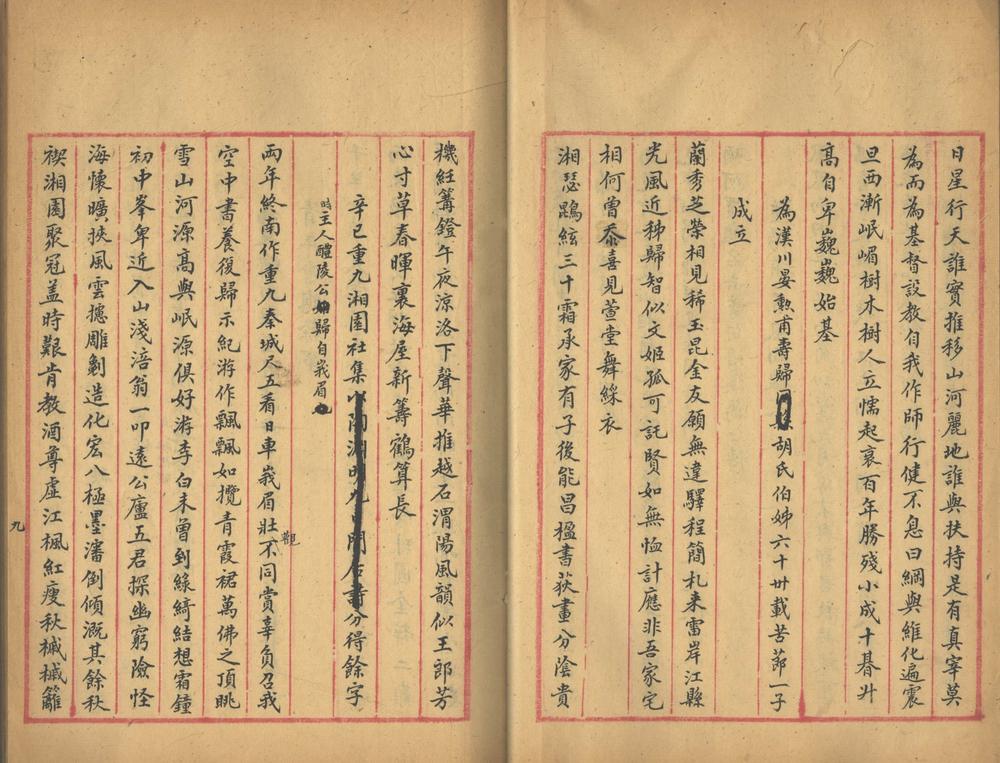 日星行天誰實推移山河麗地誰與扶持是有真宰莫
為而為基督設教自我作師行健不息曰綱與維化遍震
旦西漸岷嵋樹木樹人立懦起衰百年勝殘小成十朞升
高自卑巍巍始基
為漢川晏勲甫壽歸胡氏伯姊六十卅載苦節一子
成立
蘭秀芝榮相見稀玉昆金友願無違驛程簡札来雷岸江縣
光風近秭歸智似文姬孤可託賢如無恤計應非吾家宅
相何曾忝喜見萱堂舞綵衣
湘瑟鵾絃三十霜承家有子後能昌楹書荻畫分陰貴
機絍篝鐙午夜涼洛下聲華推越石渭陽風韻似王郎芳
心寸草春暉裏海屋新籌鶴算長
辛巳重九湘園社集分得餘字
時主人醴陵公歸自峩眉
兩年終南作重九秦城尺五看日車峩眉壯觀不同賞辜負召我
空中書養復歸示紀游作飄飄如攬青霞裾萬佛之頂眺
雪山河源高與岷源俱好游李白未曾到綠綺結想霜鐘
初中峯卑近入山淺涪翁一叩遠公廬五君探幽窮險怪
海懷曠挾風雲攄雕劖造化宏八極墨瀋倒傾溉其餘秋
禊湘園聚冠盖時艱肯教酒尊虛江楓紅瘦秋槭槭籬
九